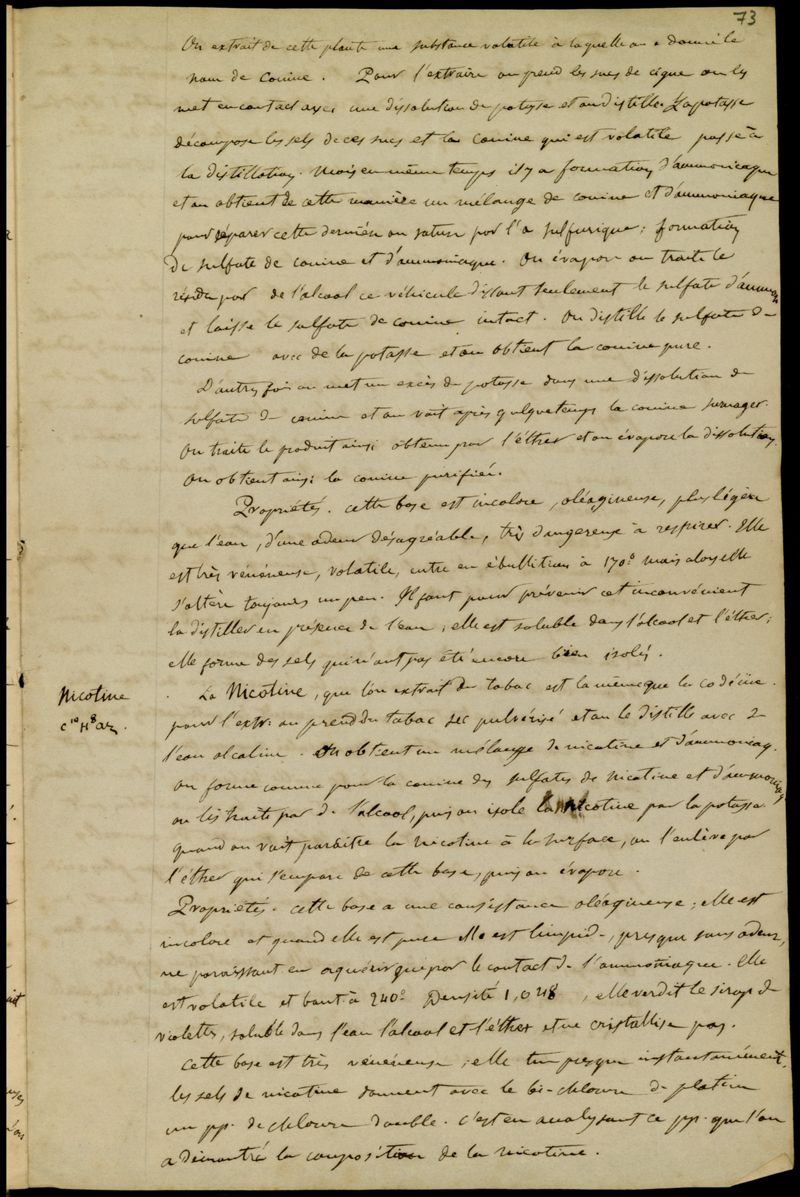 73
On extrait de cette plante une substance volatile à laquelle on a donné le
nom de Conine. Pour l'extraire on prend les sucs de cigue on les
met en contact avec une dissolution de potasse et on distille. La potasse
décompose les sels de ces sucs et la conine qui est volatile passe à
la distillation. Mais en même temps il y a formation d'ammoniaque
et on obtient de cette manière un mélange de conine et d'ammoniaque
pour séparer cette dernière on sature par l'a sulfurique; formation
de sulfate de conine et d'ammoniaque. On évapore on traite le
résidu par de l'alcool ce véhicule dissout seulement le sulfate d'ammon
et laisse le sulfate de conine intact. On distille le sulfate de
conine avec de la potasse et on obtient la conine pure.
D'autres fois on met un excès de potasse dans une dissolution de
sulfate de conine et on voit après quelque temps la conine surnager.
On traite le produit ainsi obtenu par l'éther et on évapore la dissolution.
On obtient ainsi la conine purifiée.
Propriétés. cette base est incolore, oléagineuse, plus légère
que l'eau, d'une odeur désagréable, très dangereuse à respirer. Elle
est très vénéneuse, volatile, entre en ébullition à 170° mais alors elle
s'altère toujours un peu. Il faut pour prévenir cet inconvénient
la distiller en présence de l'eau; elle est soluble dans l'alcool et l'éther;
elle forme des sels qui n'ont pas été encore bien isolés.
Nicotine
C¹⁰H⁸az.
La Nicotine, que l'on extrait du tabac est la même que la codéine.
pour l'extr. on prend du tabac sec pulvérisé et on le distille avec de
l'eau alcaline. On obtient un mélange de nicotine et d'ammoniaq.
on forme comme pour la conine des sulfates de nicotine et d'ammoniaq
on les traite par de l'alcool, puis on isole la nicotine par la potasse.
quand on voit paraître la nicotine à la surface, on l'enlève par
l'éther qui s'empare de cette base, puis on évapore.
Propriétés. cette base a une consistance oléagineuse; elle est
incolore et quand elle est pure elle est limpide, presque sans odeur,
ne paraissant en acquérir que par le contact de l'ammoniaque. Elle
est volatile et bout à 240° Densité 1,048, elle verdit le sirop de
violettes, soluble dans l'eau l'alcool et l'éther et ne cristallise pas.
Cette base est très vénéneuse; elle tue presque instantanément.
les sels de nicotine donnent avec le bi-chlorure de platine
un pp. de chlorure double. c'est en analysant ce pp. que l'on
a démontré la composition de la nicotine.